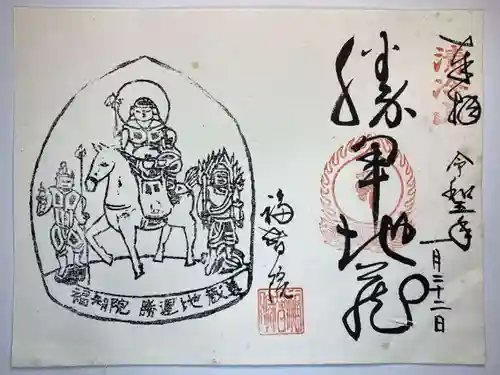 奉拝
令和五年
一月二十二日
勝軍地蔵
福智院
福智院 勝軍地蔵尊